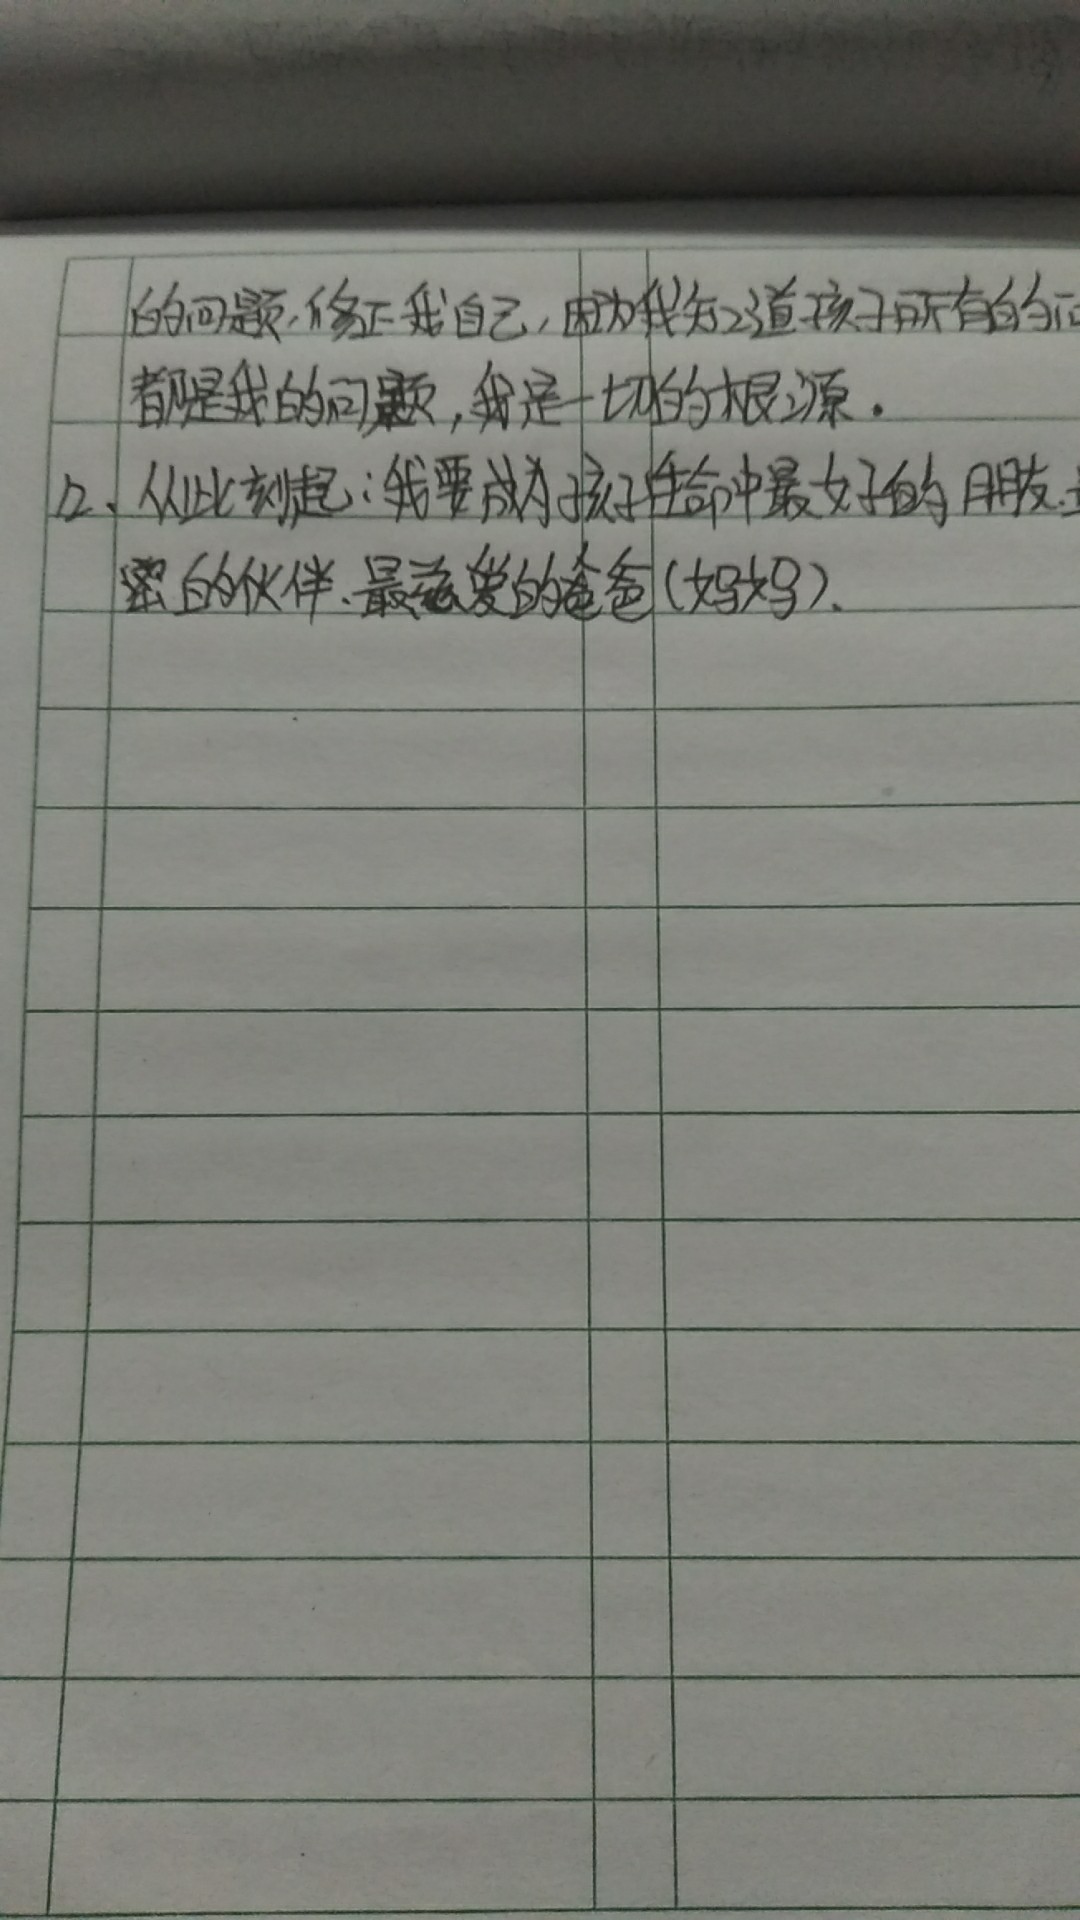 的问题,修正我自己,因为我知道孩子所有的
都是我的问题,我是一切的根源.
12、从此刻起:我要成为孩子生命中最好的朋友、
密的伙伴、最慈爱的爸爸(妈妈).